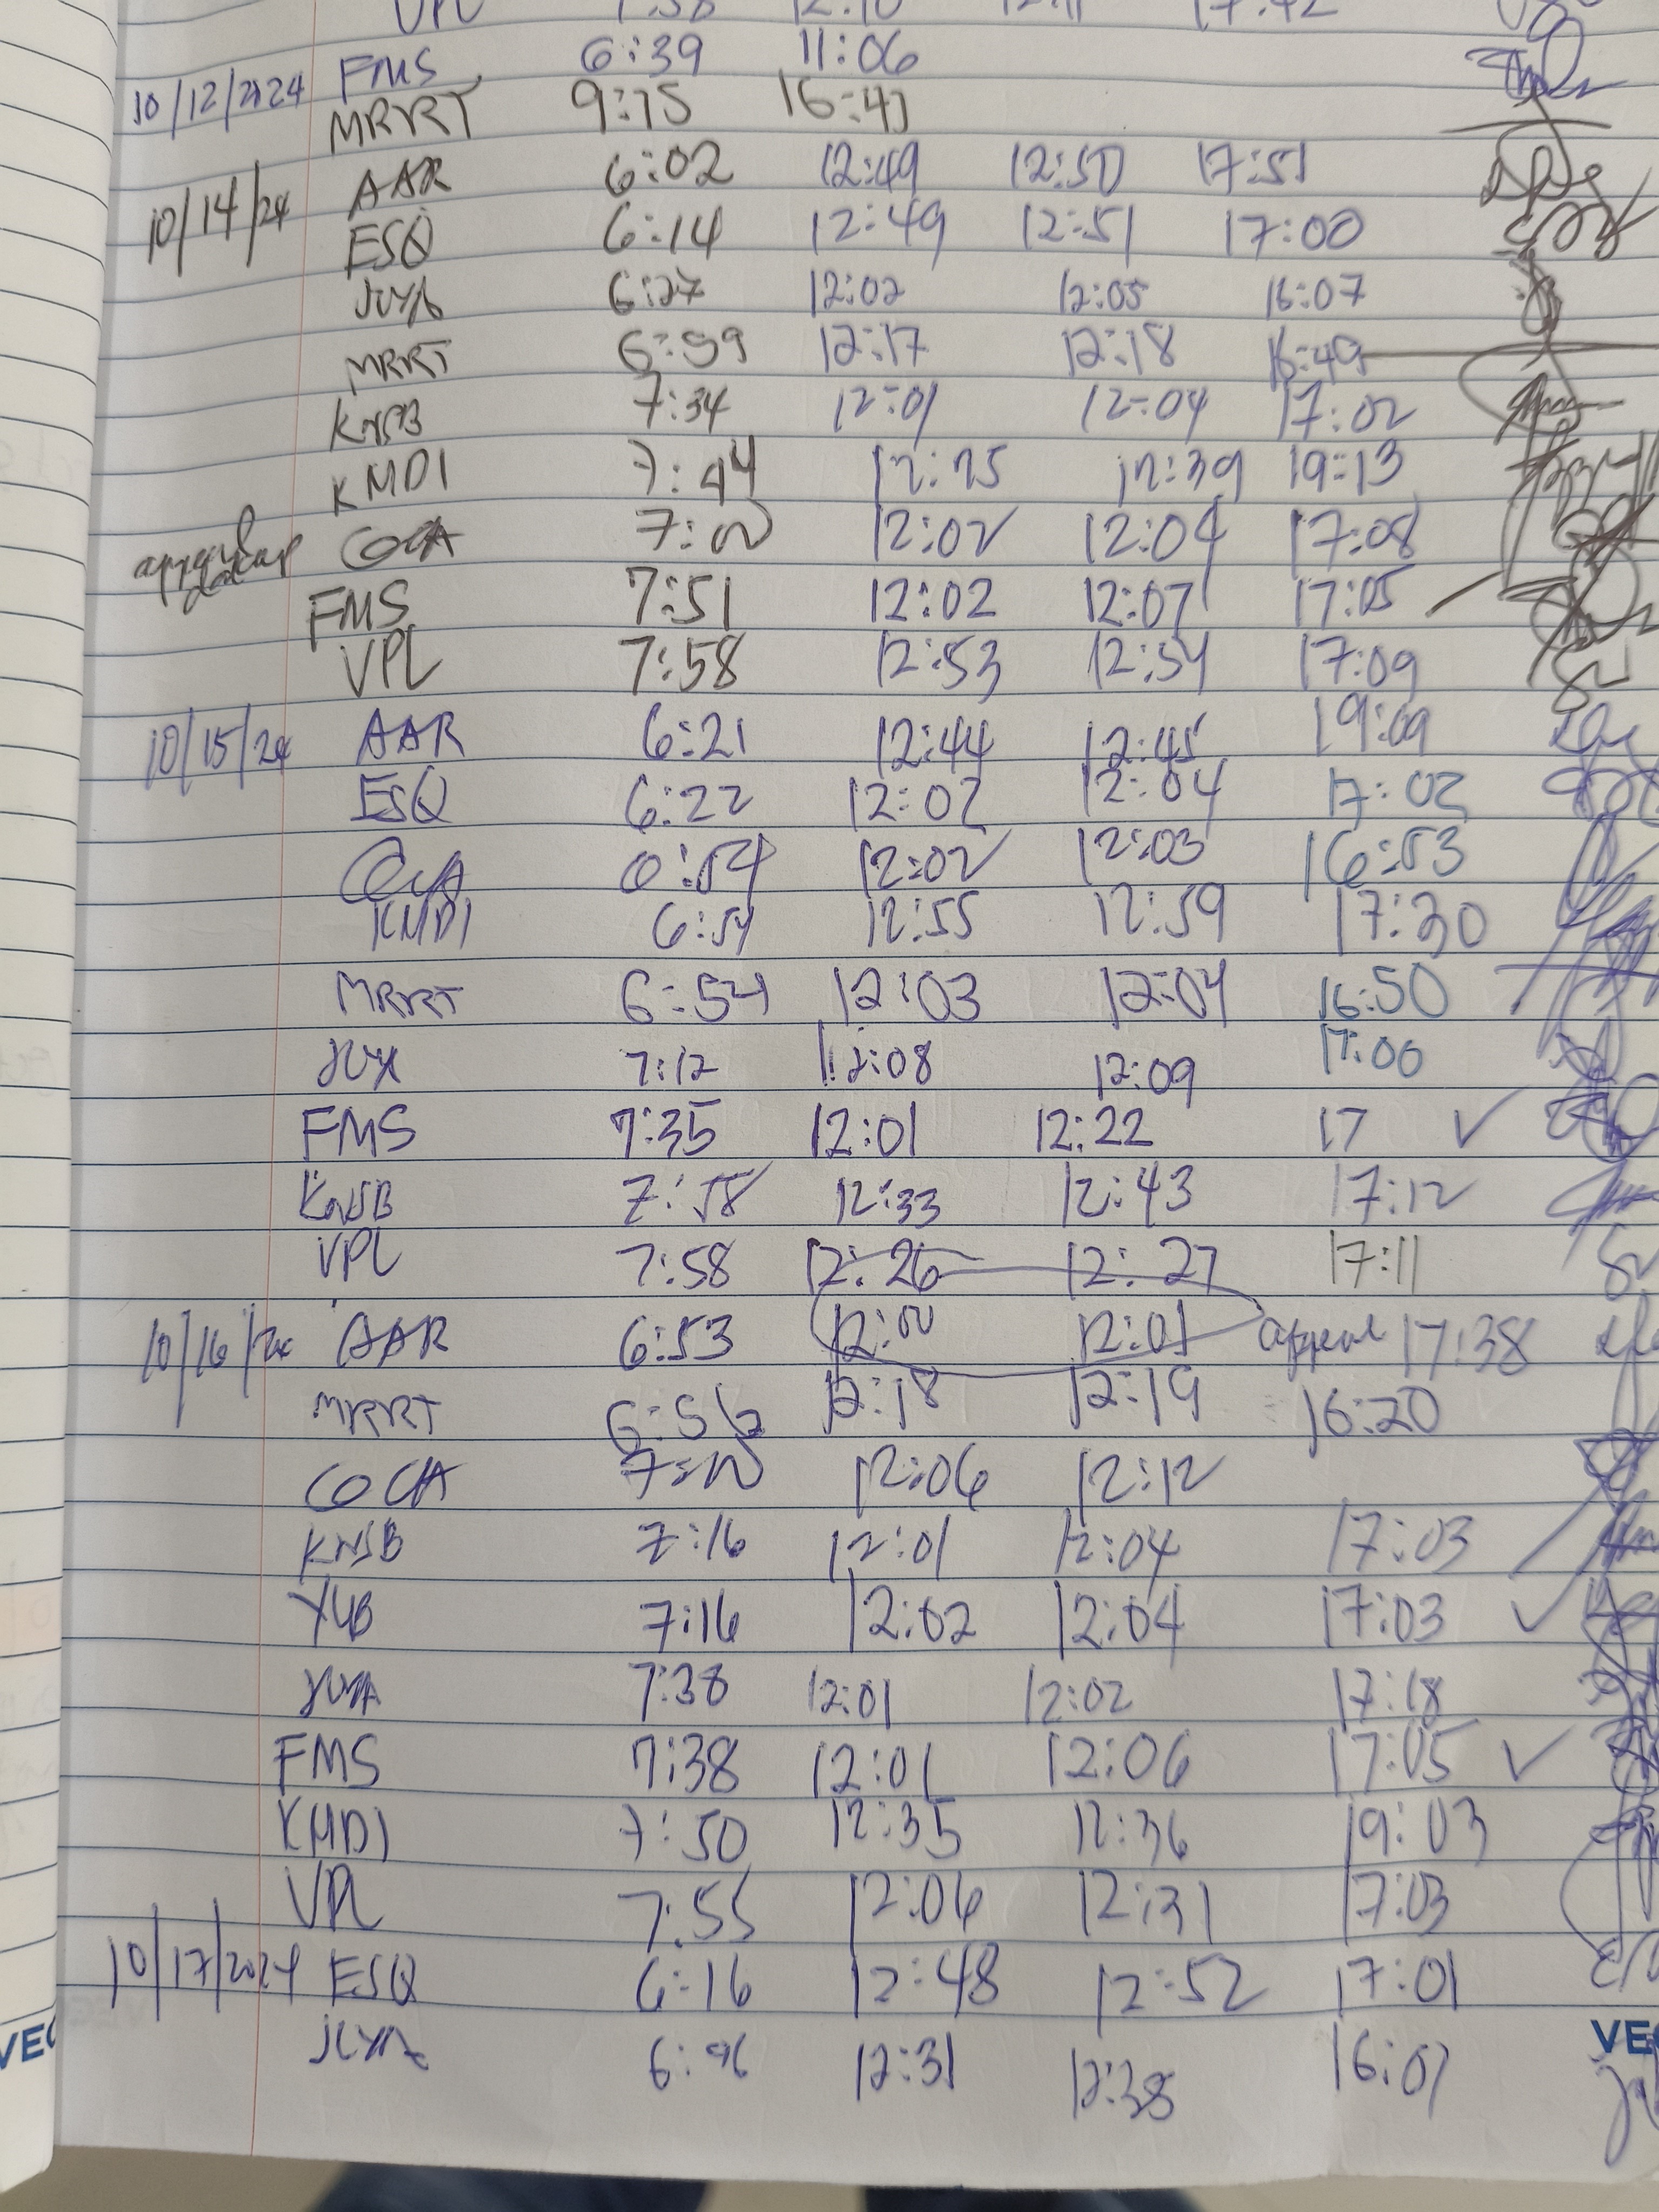 VPL 7:58 12:10 12:11 17:42
FMS 6:39 11:06
10/12/2024
MRRT 9:15 16:41
AAR 6:02 12:49 12:50 17:51
10/14/24
ESQ 6:14 12:49 12:51 17:00
6:27 12:02 12:05 16:07
MRRT 6:59 12:17 12:18 16:49
KNSB 7:34 12:01 12:04 17:02
KMDI 7:44 12:25 12:39 19:13
COCA 7:00 12:02 12:04 17:08
FMS 7:51 12:02 12:07 17:05
VPL 7:58 12:53 12:54 17:09
10/15/24 AAR 6:21 12:44 12:45 19:09
ESQ 6:22 12:02 12:04 17:02
6:54 12:02 12:03 16:53
KMDI 6:54 12:55 12:59 17:30
MRRT 6:54 12:03 12:04 16:50
7:12 12:08 12:09 17:00
FMS 7:35 12:01 12:22 17 ✓
KNSB 7:58 12:33 12:43 17:12
VPL 7:58 12:26 12:27 17:11
10/16/24 AAR 6:53 12:00 12:01 appeal 17:38
MRRT 6:56 12:18 12:19 16:20
COCA 7:00 12:06 12:12
KNSB 7:16 12:01 12:04 17:03
YUB 7:16 12:02 12:04 17:03 ✓
7:38 12:01 12:02 17:18
FMS 7:38 12:01 12:06 17:05 ✓
KMDI 7:50 12:35 12:36 19:03
VPL 7:55 12:06 12:31 17:03
10/17/2024 ESQ 6:16 12:48 12:52 17:01
12:31 12:38 16:07
VEC
VEC